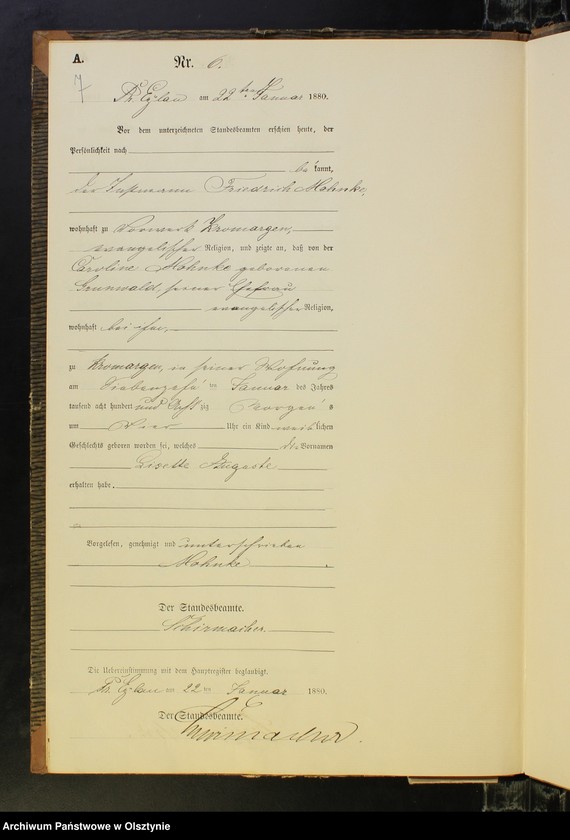 A.
Nr. 6.
7
Pr. Eylau am 22 ten Januar 1880.
Vor dem unterzeichneten Standesbeamten erschien heute, der
Persönlichkeit nach
be kannt,
der Instmann Friedrich Mohnke,
wohnhaft zu Vorwerk Kromargen,
evangelischer Religion, und zeigte an, daß von der
Caroline Mohnke geborenen
Grunwald, seiner Ehefrau
evangelischer Religion,
wohnhaft bei ihm,
zu Kromargen, in seiner Wohnung
am Siebenzehn ten Januar des Jahres
tausend acht hundert und Achtzig Morgens
um Vier Uhr ein Kind weiblichen
Geschlechts geboren worden sei, welches die Vornamen
Lisette Auguste
erhalten habe.
Vorgelesen, genehmigt und unterschrieben
Mohnke
Der Standesbeamte.
Schirmacher
Die Uebereinstimmung mit dem Hauptregister beglaubigt.
Pr. Eylau am 22 ten Januar 1880.
Der Standesbeamte.
Schirmacher.
Archiwum Państwowe w Olsztynie